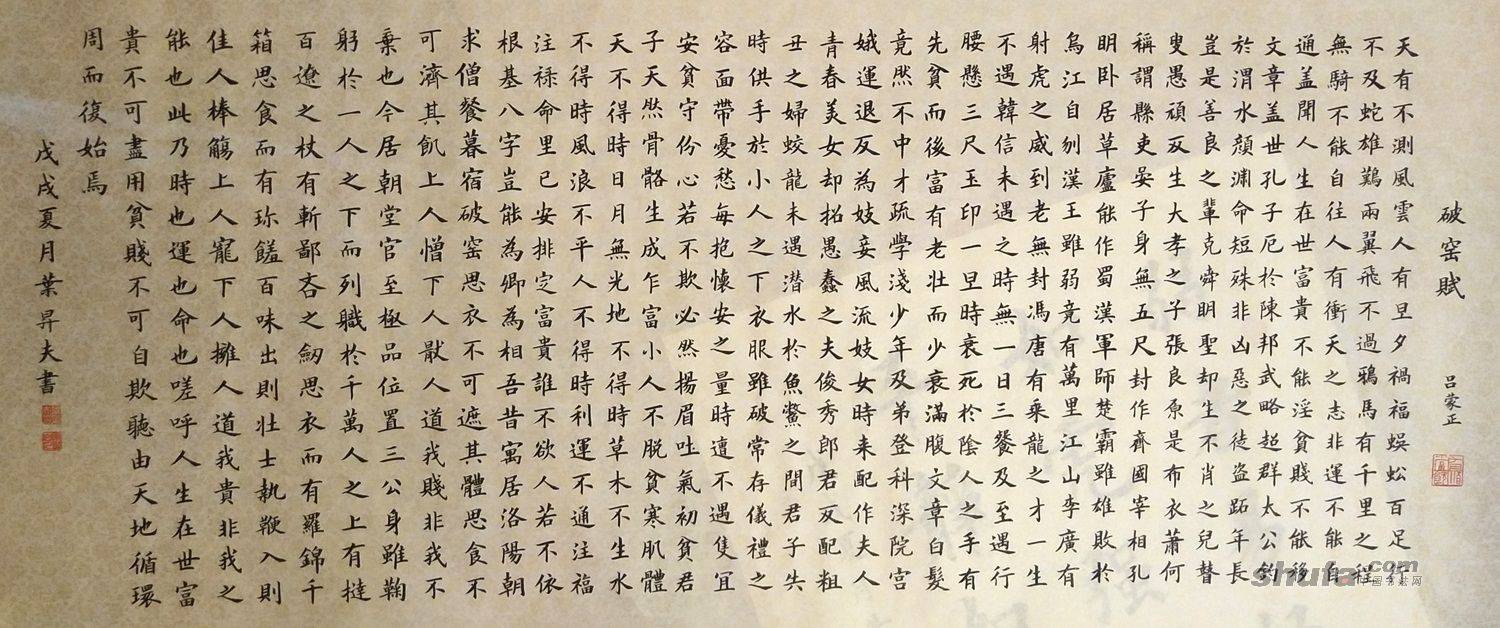 破窑賦
呂蒙正
天有不測風雲人有旦夕禍福蜈蚣百足行
不及蛇雄鷄兩翼飛不過鴉馬有千里之程
無騎不能自往人有衝天之志非運不能自
通盖聞人生在世富貴不能淫貧賤不能移
文章盖世孔子厄於陳邦武略超群太公釣
於渭水顔渊命短殊非凶惡之徒盜跖年長
豈是善良之輩克舜明聖却生不肖之兒瞽
叟愚頑反生大孝之子張良原是布衣蕭何
稱謂縣吏晏子身無五尺封作齊國宰相孔
明卧居草廬能作蜀漢軍師楚霸雖雄敗於
烏江自刎漢王雖弱竟有萬里江山李廣有
射虎之威到老無封馮唐有乘龍之才一生
不遇韓信未遇之時無一日三餐及至遇行
腰懸三尺玉印一旦時衰死於陰人之手有
先貧而後富有老壯而少衰滿腹文章白髮
竟然不中才疏學淺少年及弟登科深院宫
娥運退反為妓妾風流妓女時来配作夫人
青春美女却招愚蠢之夫俊秀郎君反配粗
丑之婦蛟龍未遇潜水於魚鱉之間君子失
時供手於小人之下衣服雖破常存儀禮之
容面帶憂愁每抱懷安之量時遭不遇隻宜
安貧守份心若不欺必然揚眉吐氣初貧君
子天然骨骼生成乍富小人不脱貧寒肌體
天不得時日月無光地不得時草木不生水
不得時風浪不平人不得時利運不通注福
注禄命里已安排定富貴誰不欲人若不依
根基八字豈能為卿為相吾昔寓居洛陽朝
求僧餐暮宿破窑思衣不可遮其體思食不
可濟其飢上人憎下人猒人道我賤非我不
棄也今居朝堂官至極品位置三公身雖鞠
躬於一人之下而列職於千萬人之上有撻
百遼之杖有斬鄙吝之劒思衣而有羅錦千
箱思食而有珎饈百味出則壮士執鞭入則
佳人棒觴上人寵下人擁人道我貴非我之
能也此乃時也運也命也嗟呼人生在世富
貴不可盡用貧賤不可自欺聽由天地循環
周而復始焉
戊戌夏月葉昇夫書
shufa.com
中国书法网